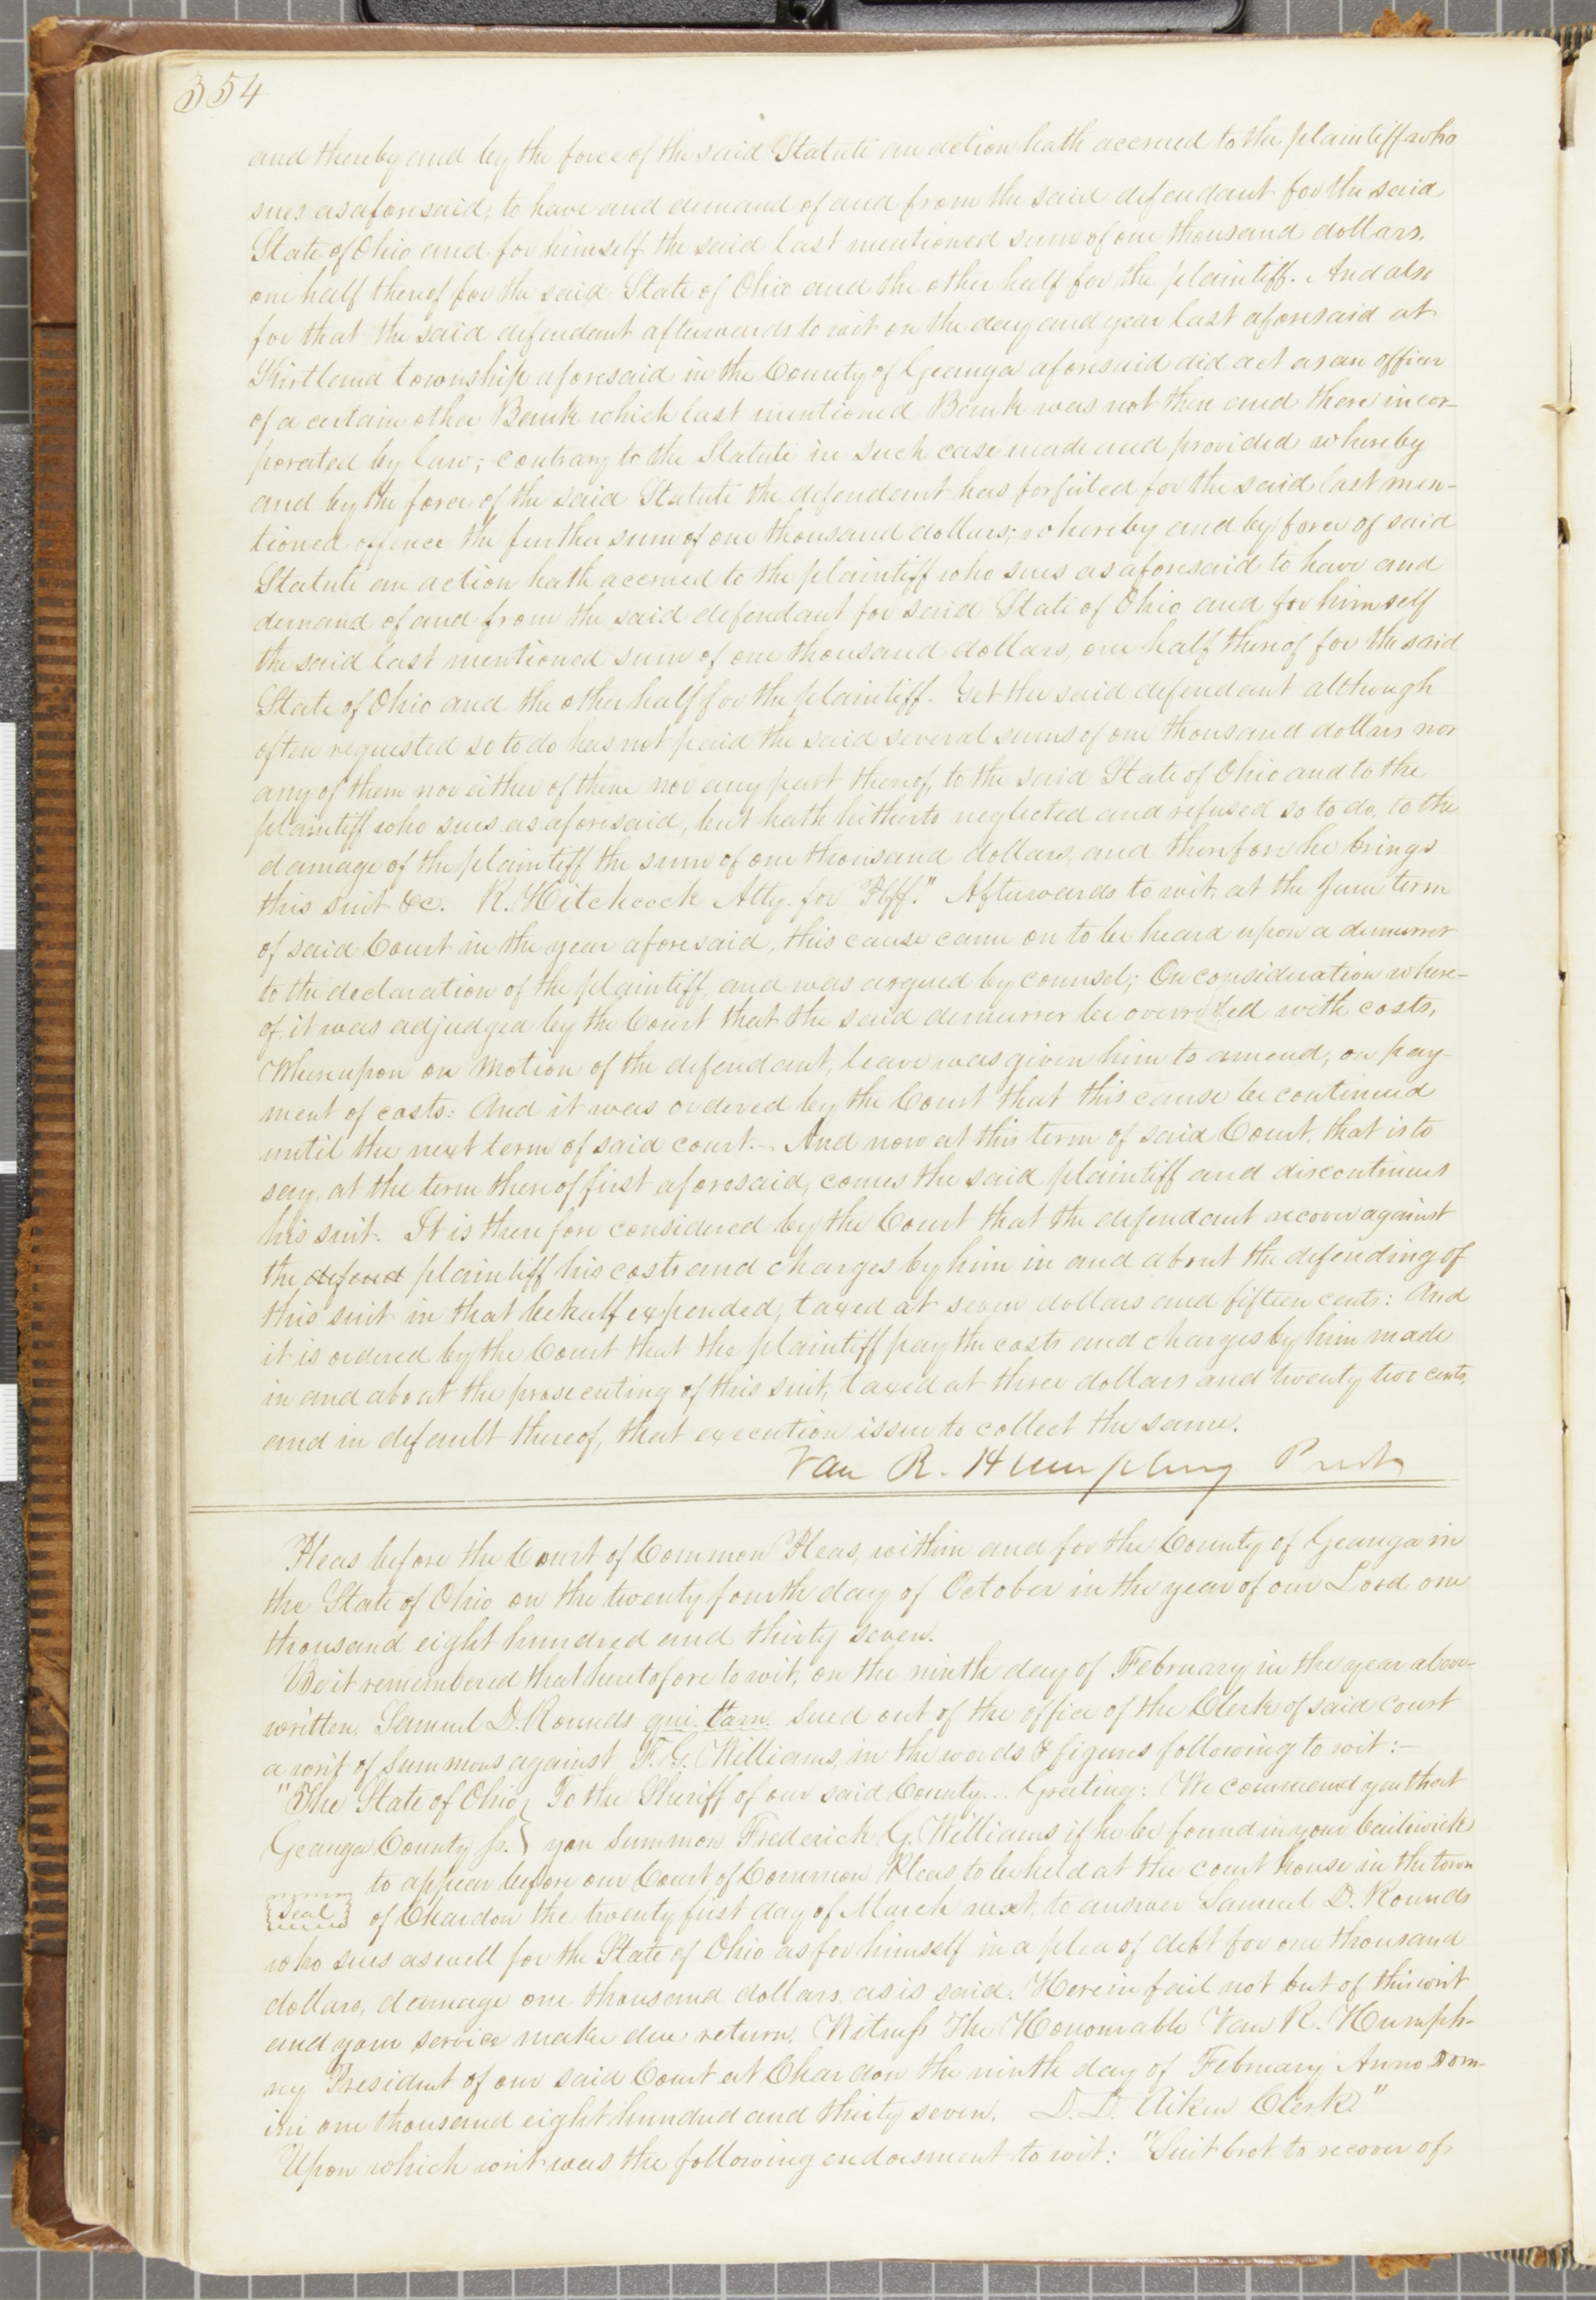 354
and thereby and by the force of the said Statute an action hath accrued to the plaintiff who
sues as aforesaid; to have and demand of and from the said defendant for the said
State of Ohio and for himself the said last mentioned sum of one thousand dollars,
one half thereof for the said State of Ohio and the other half for the plaintiff. And also
for that the said defendant afterwards to wit on the day and year last aforesaid at
Kirtland township aforesaid in the County of Geauga aforesaid did act as an officer
of a certain other Bank which last mentioned Bank was not then and there incor-
porated by law; contrary to the Statute in such case made and provided whereby
and by the force of the said Statute the defendant has forfeited for the said last men-
tioned offence the further sum of one thousand dollars; whereby and by force of said
Statute an action hath accrued to the plaintiff who sues as aforesaid to have and
demand of and from the said defendant for said State of Ohio and for himself
the said last mentioned sum of one thousand dollars, one half thereof for the said
State of Ohio and the other half for the plaintiff. Yet the said defendant although
often requested so to do has not paid the said several sums of one thousand dollars nor
any of them nor either of them nor any part thereof, to the said State of Ohio and to the
plaintiff who sues as aforesaid, but hath hitherto neglected and refused so to do, to the
damage of the plaintiff the sum of one thousand dollars, and therefore he brings
this suit &c. R. Hitchcock Atty. for Plff." Afterwards to wit, at the June term
of said Court in the year aforesaid, this cause came on to be heard upon a demurrer
to the declaration of the plaintiff, and was argued by counsel; On consideration where-
of, it was adjudged by the Court that the said demurrer be overruled with costs,
Whereupon on motion of the defendant, leave was given him to amend, on pay-
ment of costs: And it was ordered by the Court that this cause be continued
until the next term of said court.- And now at this term of said Court, that is to
say, at the term thereof first aforesaid, comes the said plaintiff and discontinues
his suit. It is therefore considered by the Court that the defendant recover against
the defend plaintiff his costs and charges by him in and about the defending of
this suit in that behalf expended, taxed at seven dollars and fifteen cents: And
it is ordered by the Court that the plaintiff pay the costs and charges by him made
in and about the prosecuting of this suit, taxed at three dollars and twenty two cents,
and in default thereof, that execution issue to collect the same.
Van R. Humphrey Prest
Pleas before the Court of Common Pleas, within and for the County of Geauga in
the State of Ohio on the twenty fourth day of October in the year of our Lord one
thousand eight hundred and thirty seven.
Be it remembered that heretofore to wit, on the ninth day of February in the year above-
written, Samuel D. Rounds qui. tam. sued out of the office of the Clerk of said court
a writ of summons against F. G. Williams, in the words & figures following to wit:-
"The State of Ohio } To the Sheriff of our said County... Greeting: We command you that
Geauga County ss. } you summon Frederick G. Williams if he be found in your bailiwick
to appear before our Court of Common Pleas, to be held at the court house in the town
Seal of Chardon the twenty first day of March next, to answer Samuel D. Rounds
who sues as well for the State of Ohio as for himself in a plea of debt for one thousand
dollars, damage one thousand dollars, as is said. Herein fail not but of this writ
and your service make due return. Witness The Honourable Van R. Humph-
rey President of our said Court at Chardon the ninth day of February Anno Dom-
ini one thousand eight hundred and thirty seven. D. D. Aiken Clerk"
Upon which writ was the following endorsment to wit: "Suit brot. to recover of